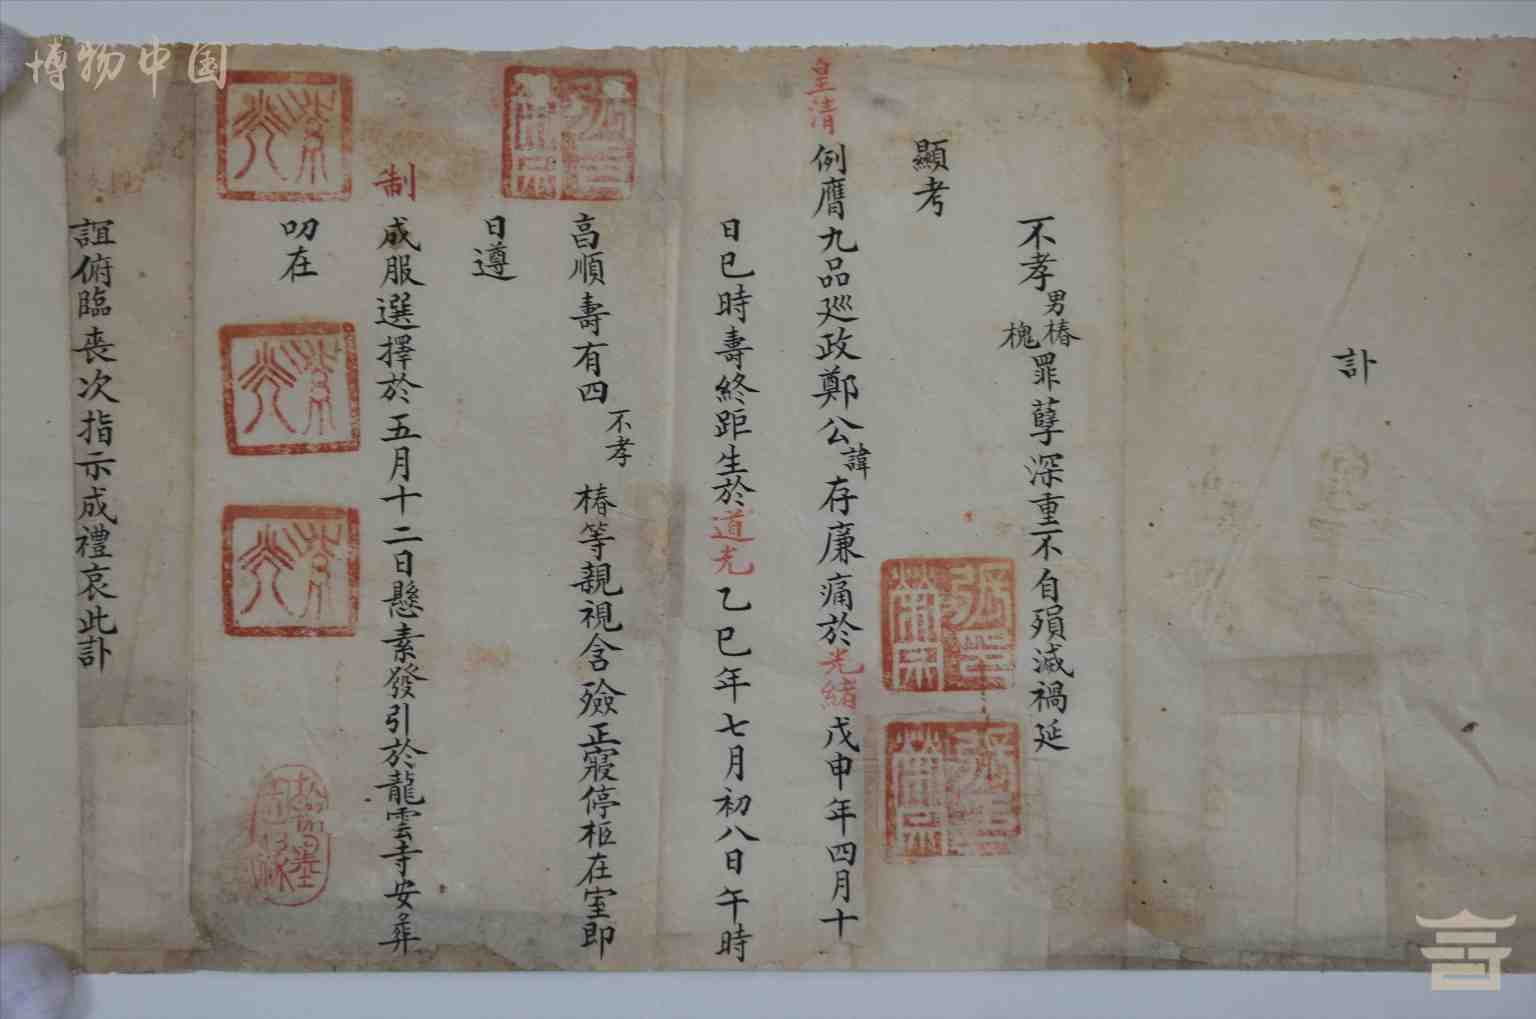 訃
不孝男椿槐罪孽深重不自殞滅禍延
顯考
皇清例膺九品廵政鄭公諱存廉痛於光緒戊申年四月十
日巳時壽終距生於道光乙巳年七月初八日午時
高順壽有四不孝椿等親視含殮正寢停柩在室即
日遵
制成服選擇於五月十二日懸素發引於龍雲寺安葬
叨在
誼俯臨喪次指示成禮哀此訃
博物中国